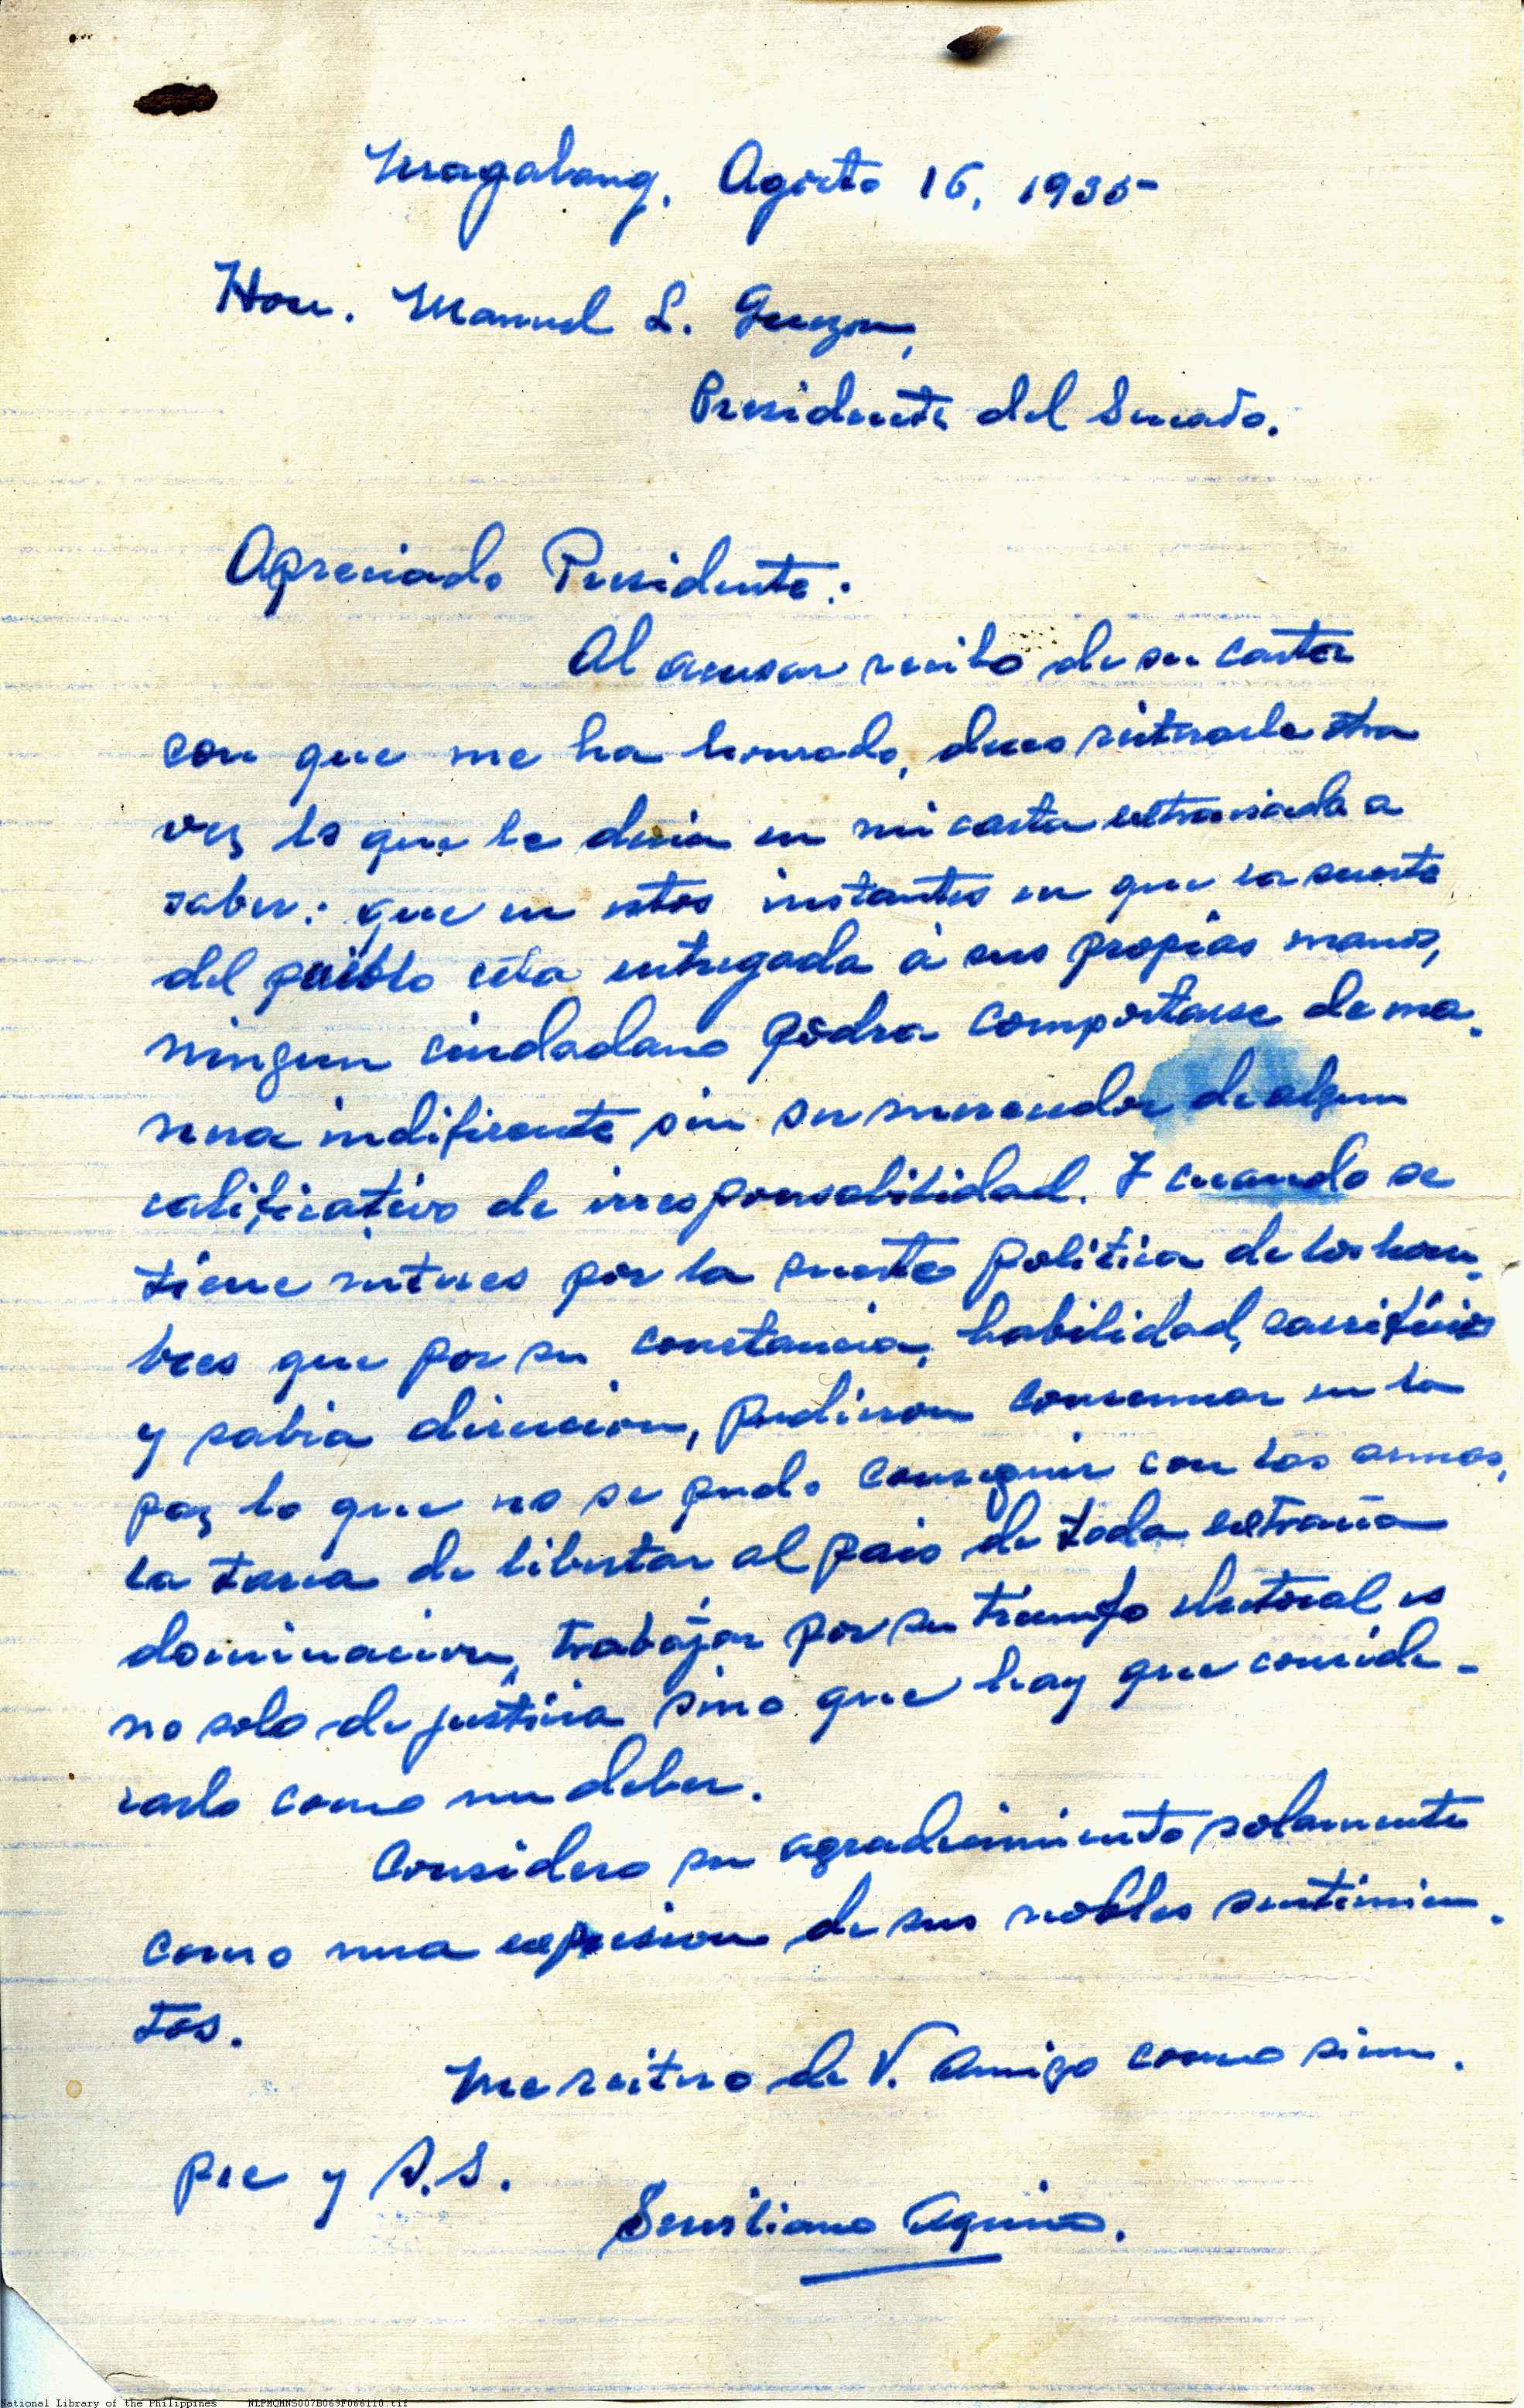 Magalang, Agosto 16, 1935
Hon. Manuel L. Quezon,
Presidente del Senado.
Apreciado Presidente:
Al acusar recibo de su carta
con que me ha honrado, deseo reiterarle otra
vez lo que le decia en mi carta extraviada a
saber: que en estos instantes en que la suerte
del pueblo esta entregada á sus propias manos,
ningun ciudadano podra comportarse de ma-
nera indiferente sin ser merecedor de algun
calificativo de irresponsabilidad. Y cuando se
tiene interes por la suerte politica de los hom-
bres que por su constancia, habilidad, sacrificios
y sabia direccion, pudieron consumar en la
paz lo que no se pudo conseguir con las armas,
la tarea de libertar al pais de toda extraña
dominacion, trabajar por su triunfo electoral es
no solo de justicia sino que hay que conside-
rarlo como un deber.
Considero su agradecimiento solamente
como una expresion de sus nobles sentimien-
tos.
Me reitero de V. amigo como siem-
pre y S.S.
Serviliano Aquino.
National Library of the Philippines NLPMQMNS007B069F066110.tif